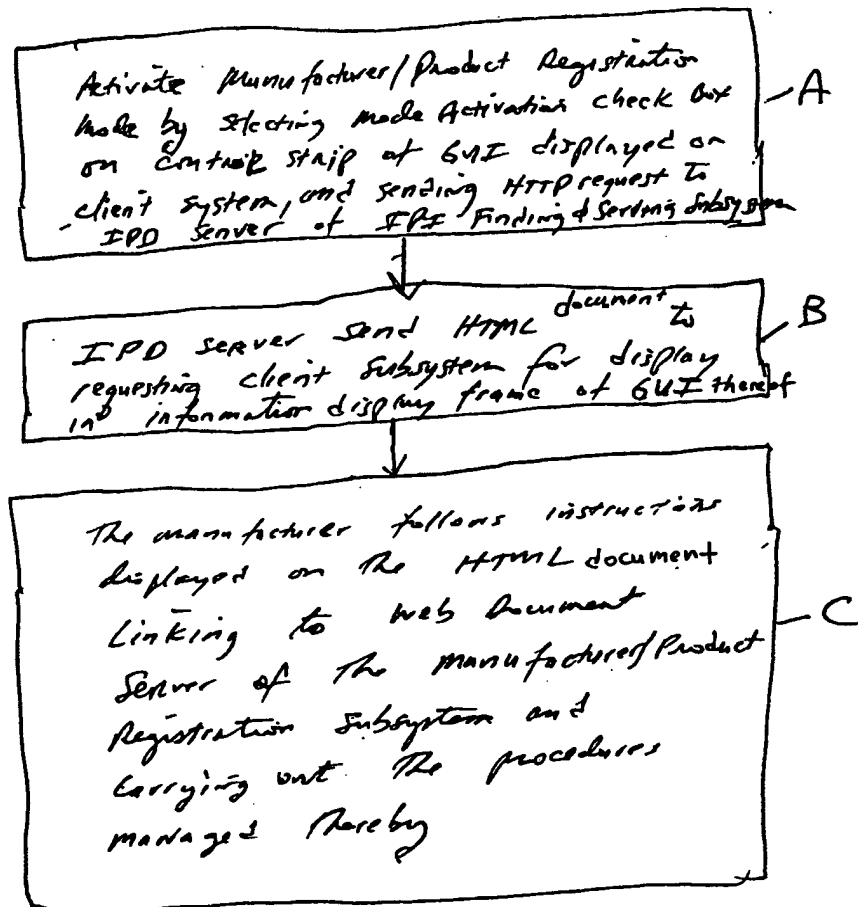 Activate Manufacturer/Product Registration
Mode by selecting Mode Activation check Box
on control strip of GUI displayed on
client system, and sending HTTP request to
IPD server of IPI Finding & Serving Subsystem
A
IPD server send HTML document to
requesting client subsystem for display
in information display frame of GUI thereof
B
The manufacturer follows instructions
displayed on the HTML document
Linking to web Document
Server of the manufacturer/Product
Registration subsystem and
Carrying out the procedures
managed thereby
C